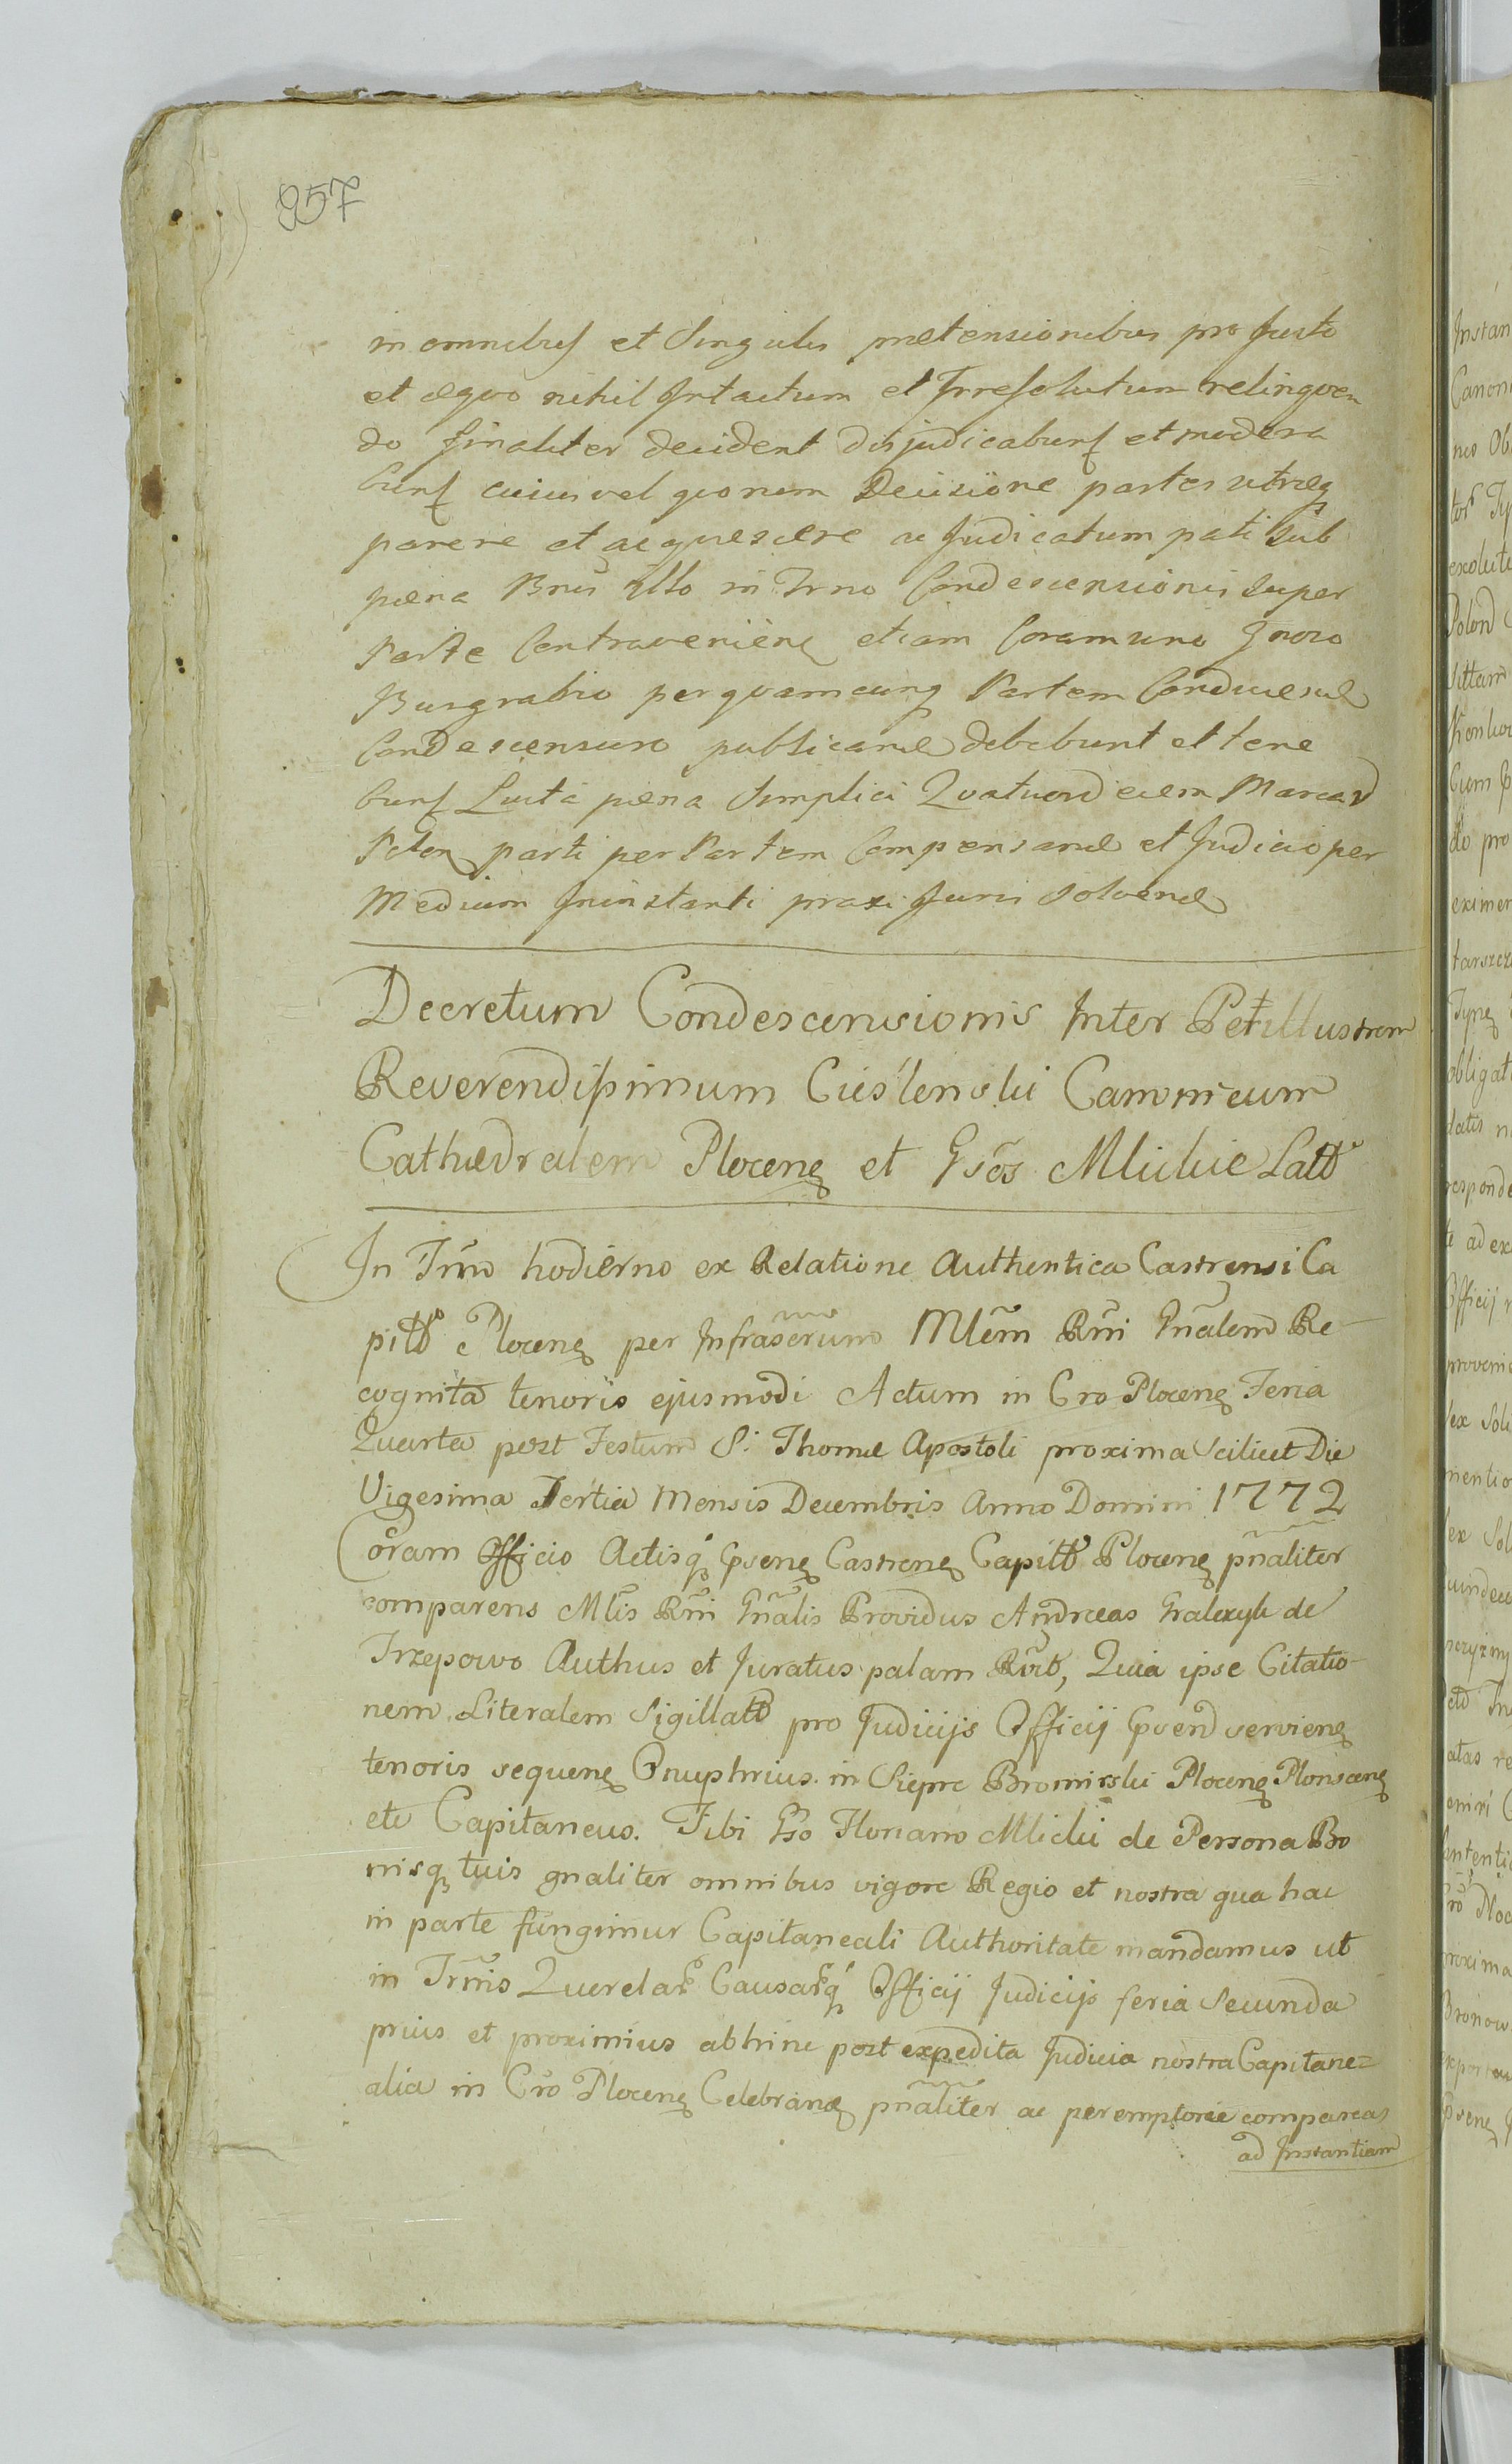 957
in omnibus et Singulis praetensionibus pro Justo
et aequo nihil Intactum et Irresolutum relinquen
do finaliter decident dijudicabunt et modera
bunt cuius vel quorum Decisione partes utraeq
parere et acquiescere ac Judicatum pati sub
paena Bnis illo in Trno Condescensionis super
Parte Contravenien etiam Coram uno Jnoro
Burgrabio per quamcunq Partem Conducend
Condescensuro publicand debebunt et tene
bunt Lucta paena Simplici Quatuordecem Marcar
Polon parti per Partem Compensand et Judicio per
Medium Ininstanti praxi Juris solvend
Decretum Condescensionis Inter Perillustrem
Reverendissimum Cieslenski Canonicum
Cathedralem Plocen et Gsos Mlickie Latt
In Trno hodierno ex Relatione Authentica Castrensi Ca
pittl Plocen per Infrascrum Mlem Rni Gnalem Re-
cognita tenoris ejusmodi Actum in Cro Plocen Feria
Quarta post Festum S: Thomae Apostoli proxima scilicet Die
Vigesima Tertia Mensis Decembris Anno Domini 1772
Coram Officio Actisq psen Castren Capittl Plocen pnaliter
comparens Mlis Rni Gnalis Providus Andraeas Gralczyk de
Trzepowo Authus et Juratus palam Rvit, Quia ipse Citatio-
nem Literalem Sigillatt pro Judicijs Officij psend servien
tenoris sequen Onuphrius in Siepre Bromirski Plocen Plonscen
etc Capitaneus. Tibi Gso Floriano Mlicki de Persona Bo
nisq tuis gnaliter omnibus vigore Regio et nostra qua hac
in parte fungimur Capitaneali Authoritate mandamus ut
in Trnis Querelar Causarq Officij Judicijs feria Secunda
prius et proximius abhinc post expedita Judicia nostra Capitane=
alia in Cro Plocen Celebrand pnaliter ac peremptorie compareas
ad Instantiam